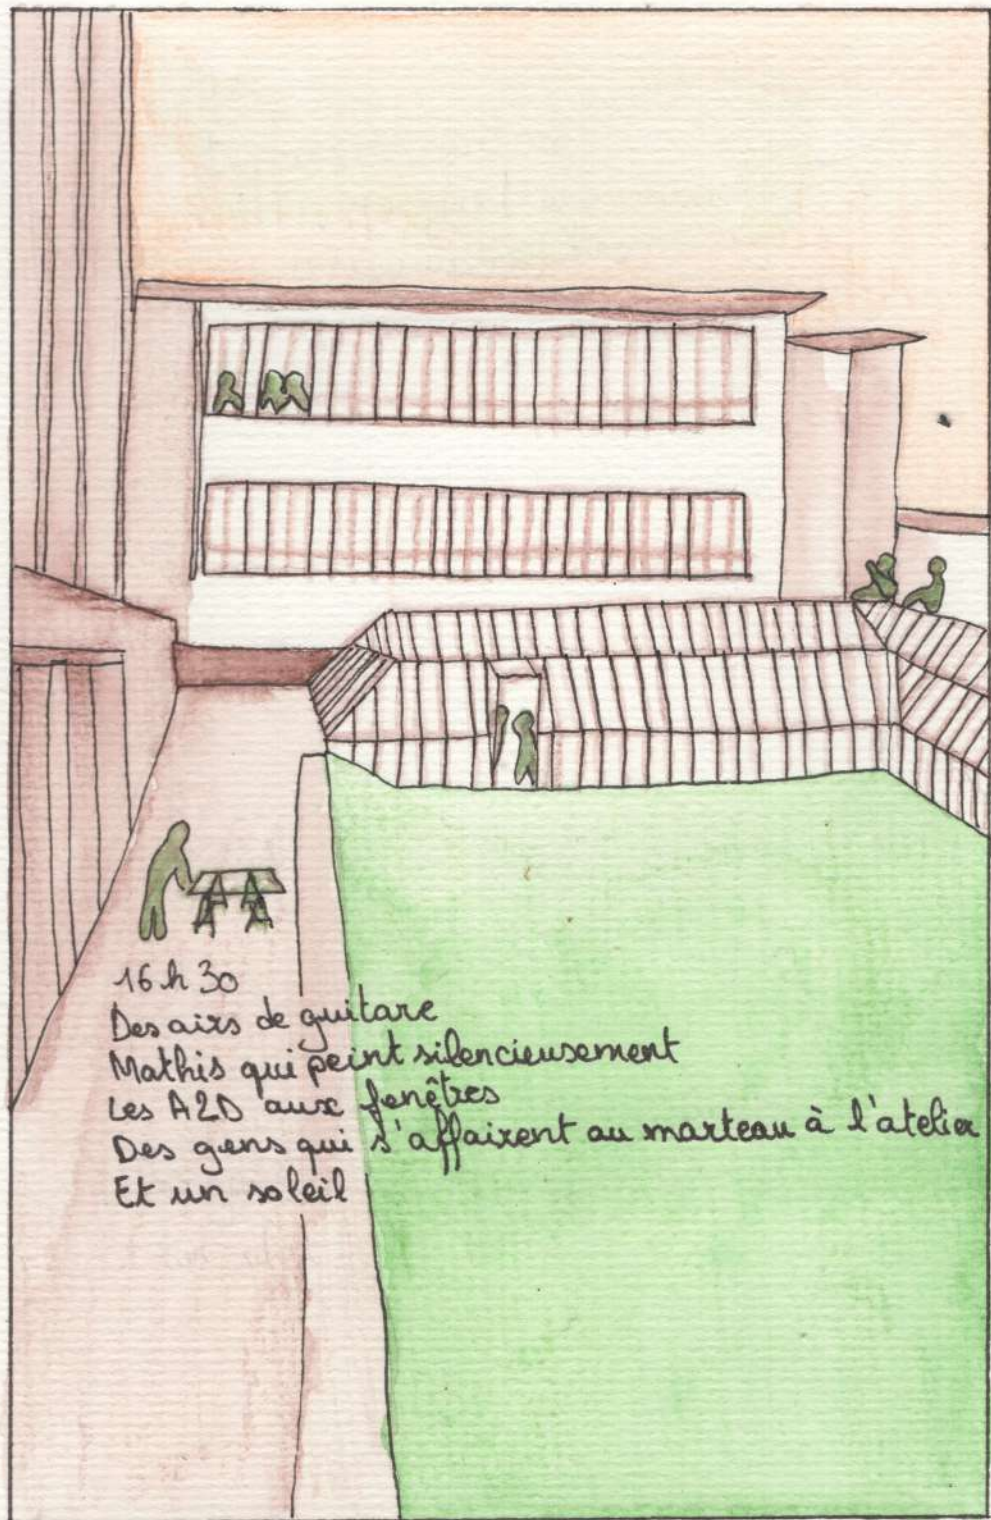 16 h 30
Des airs de guitare
Mathis qui peint silencieusement
Les A2D aux fenêtres
Des gens qui s'affairent au marteau à l'atelier
Et un soleil